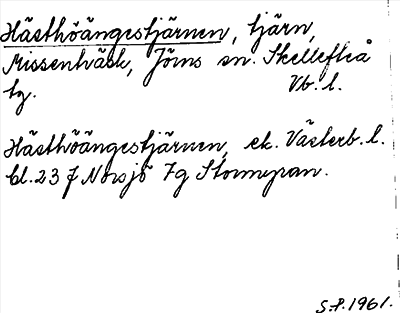 Hästhöängestjärnen, tjärn,
Missenträsk, Jörns sn. Skellefteå
tg. Vb. l.
Hästhöängestjärnen, ek. Västerb. l.
bl. 23 J Norsjö 7g Stormyran.
S.P. 1961.